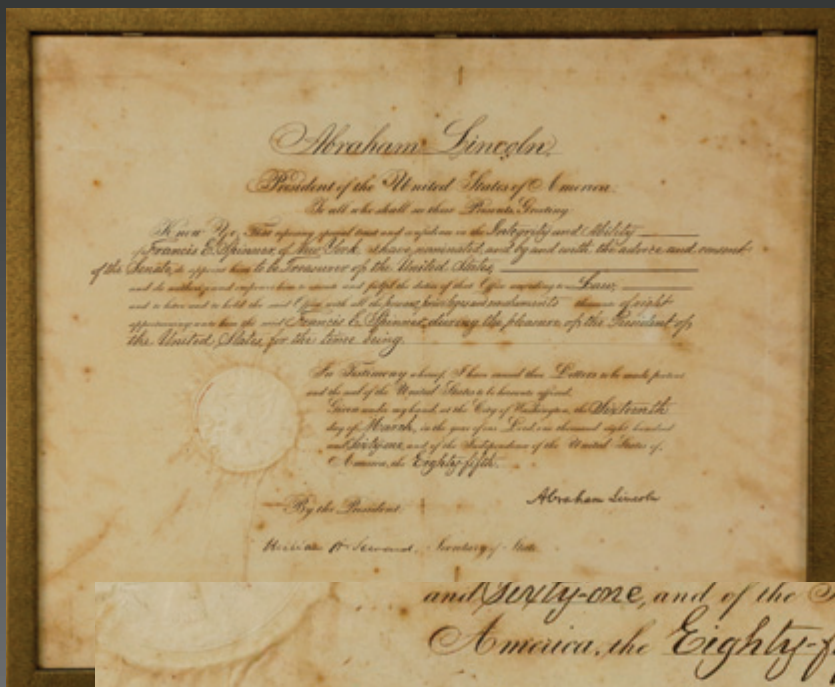 Abraham Lincoln,
President of the United States of America.
To all who shall see these Presents, Greeting:
Know Ye, That reposing special trust and confidence in the Integrity and Ability
of Francis E. Spinner, of New York, I have nominated, and by and with the advice and consent
of the Senate, do appoint him to be Treasurer of the United States,
and do authorize and empower him to execute and fulfil the duties of that Office according to Law,
and to have and to hold the said Office with all the powers, privileges and emoluments thereunto of right
appertaining unto him the said Francis E. Spinner, during the pleasure of the President of
the United States, for the time being.
In Testimony whereof, I have caused these Letters to be made patent
and the seal of the United States to be hereunto affixed.
Given under my hand, at the City of Washington, the Sixteenth
day of March, in the year of our Lord one thousand eight hundred
and Sixty-one, and of the Independence of the United States of
America, the Eighty-fifth.
Abraham Lincoln
By the President:
William H Seward, Secretary of State.
and Sixty-one, and of the
America, the Eighty-